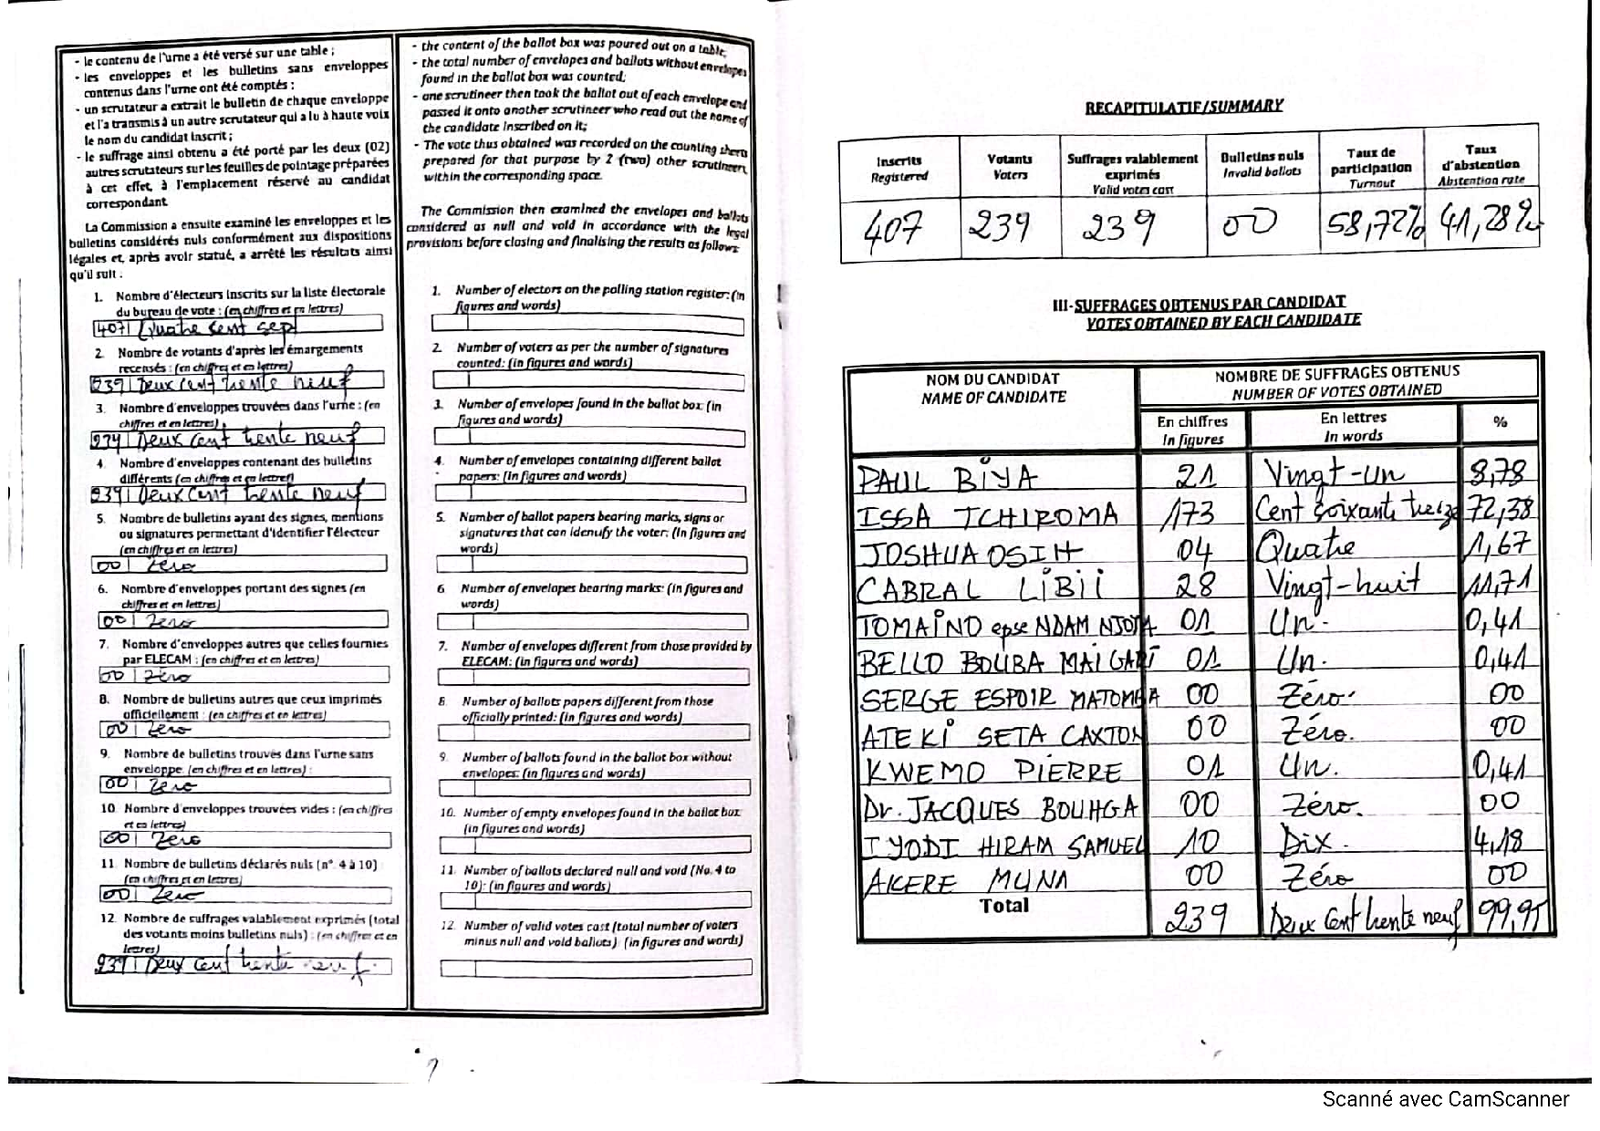 - le contenu de l'urne a été versé sur une table ;
- les enveloppes et les bulletins sans enveloppes
contenus dans l'urne ont été comptés ;
- un scrutateur a extrait le bulletin de chaque enveloppe
et l'a transmis à un autre scrutateur qui a lu à haute voix
le nom du candidat inscrit ;
- le suffrage ainsi obtenu a été porté par les deux (02)
autres scrutateurs sur les feuilles de pointage préparées
à cet effet, à l'emplacement réservé au candidat
correspondant
La Commission a ensuite examiné les enveloppes et les
bulletins considérés nuls conformément aux dispositions
légales et, après avoir statué, a arrêté les résultats ainsi
qu'il suit :
1. Nombre d'électeurs inscrits sur la liste électorale
du bureau de vote : (en chiffres et en lettres)
407 | Quatre cent sept
2. Nombre de votants d'après les émargements
recensés : (en chiffres et en lettres)
239 | Deux cent trente neuf
3. Nombre d'enveloppes trouvées dans l'urne : (en
chiffres et en lettres)
239 | Deux cent trente neuf
4. Nombre d'enveloppes contenant des bulletins
différents (en chiffres et en lettres)
239 | Deux cent trente neuf
5. Nombre de bulletins ayant des signes, mentions
ou signatures permettant d'identifier l'électeur
(en chiffres et en lettres)
00 | Zéro
6. Nombre d'enveloppes portant des signes (en
chiffres et en lettres)
00 | Zéro
7. Nombre d'enveloppes autres que celles fournies
par ELECAM : (en chiffres et en lettres)
00 | Zéro
8. Nombre de bulletins autres que ceux imprimés
officiellement : (en chiffres et en lettres)
00 | Zéro
9. Nombre de bulletins trouvés dans l'urne sans
enveloppe (en chiffres et en lettres) :
00 | Zéro
10. Nombre d'enveloppes trouvées vides : (en chiffres
et en lettres)
00 | Zéro
11. Nombre de bulletins déclarés nuls (n° 4 à 10)
(en chiffres et en lettres)
00 | Zéro
12. Nombre de suffrages valablement exprimés (total
des votants moins bulletins nuls) : (en chiffres et en
lettres)
239 | Deux cent trente neuf
- the content of the ballot box was poured out on a table,
- the total number of envelopes and ballots without envelopes
found in the ballot box was counted;
- one scrutineer then took the ballot out of each envelope and
passed it onto another scrutineer who read out the name of
the candidate inscribed on it;
- The vote thus obtained was recorded on the counting sheets
prepared for that purpose by 2 (two) other scrutineers,
within the corresponding space.
The Commission then examined the envelopes and ballots
considered as null and void in accordance with the legal
provisions before closing and finalising the results as follows:
1. Number of electors on the polling station register: (in
figures and words)
2. Number of voters as per the number of signatures
counted: (in figures and words)
3. Number of envelopes found in the ballot box: (in
figures and words)
4. Number of envelopes containing different ballot
papers: (in figures and words)
5. Number of ballot papers bearing marks, signs or
signatures that can identify the voter: (in figures and
words)
6 Number of envelopes bearing marks: (in figures and
words)
7. Number of envelopes different from those provided by
ELECAM: (in figures and words)
8. Number of ballots papers different from those
officially printed: (in figures and words)
9. Number of ballots found in the ballot box without
envelopes: (in figures and words)
10. Number of empty envelopes found in the ballot box:
(in figures and words)
11. Number of ballots declared null and void (No. 4 to
10): (in figures and words)
12. Number of valid votes cast (total number of voters
minus null and void ballots) (in figures and words)
RECAPITULATIF/SUMMARY
Inscrits Registered | Votants Voters | Suffrages valablement exprimés Valid votes cast | Bulletins nuls Invalid ballots | Taux de participation Turnout | Taux d'abstention Abstention rate
407 239 239 00 58,72% 41,28%
III-SUFFRAGES OBTENUS PAR CANDIDAT
VOTES OBTAINED BY EACH CANDIDATE
NOM DU CANDIDAT NAME OF CANDIDATE | NOMBRE DE SUFFRAGES OBTENUS NUMBER OF VOTES OBTAINED
En chiffres In figures | En lettres In words | %
PAUL BIYA 21 Vingt-un 8,78
ISSA TCHIROMA 173 Cent soixante treize 72,38
JOSHUA OSIH 04 Quatre 1,67
CABRAL LIBII 28 Vingt-huit 11,71
TOMAINO epse NDAM NJOYA 01 Un. 0,41
BELLO BOUBA MAIGARI 01 Un. 0,41
SERGE ESPOIR MATOMBA 00 Zéro. 00
ATEKI SETA CAXTON 00 Zéro. 00
KWEMO PIERRE 01 Un. 0,41
Dr. JACQUES BOUHGA 00 Zéro. 00
IYODI HIRAM SAMUEL 10 Dix. 4,18
AKERE MUNA 00 Zéro 00
Total 239 Deux cent trente neuf 99,95
Scanné avec CamScanner